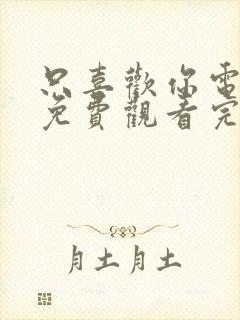 只喜歡你電
免費觀看完
月土月土